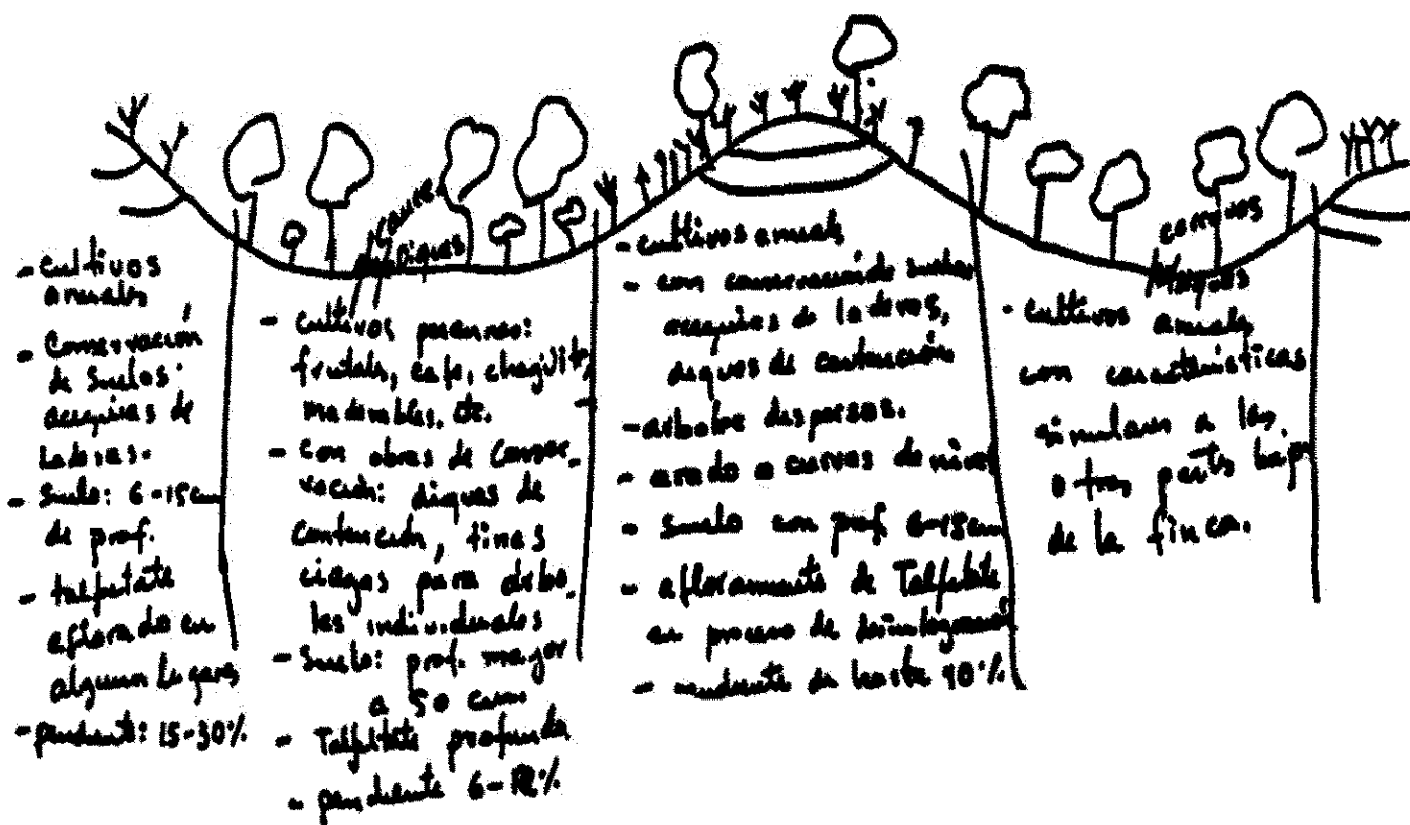 cauce
diques
cauces
diques
- cultivos
anuales
- Conservación
de suelos:
acequias de
laderas.
- Suelo: 6-15 cm
de prof.
- talpetate
aflorado en
algunos lugares
- pendiente: 15-30%
- cultivos perennes:
frutals, cafe, chaguite,
maderables, etc.
- con obras de conser-
vación: diques de
contención, tinas
ciegas para árbo-
les individuales
- Suelo: prof. mayor
a 50 cm
- Talpetate profundo
- pendiente 6-12%
- cultivos anuals
- con conservación de suelos
acequias de laderas,
diques de contención
- arboles dispersos.
- arado a curvas de nivel
- suelo con prof. 6-15 cm
- afloramiento de Talpetate
en proceso de
- pendiente de hasta 40%
- cultivos anuals
con características
similares a las
otras partes bajas
de la finca.